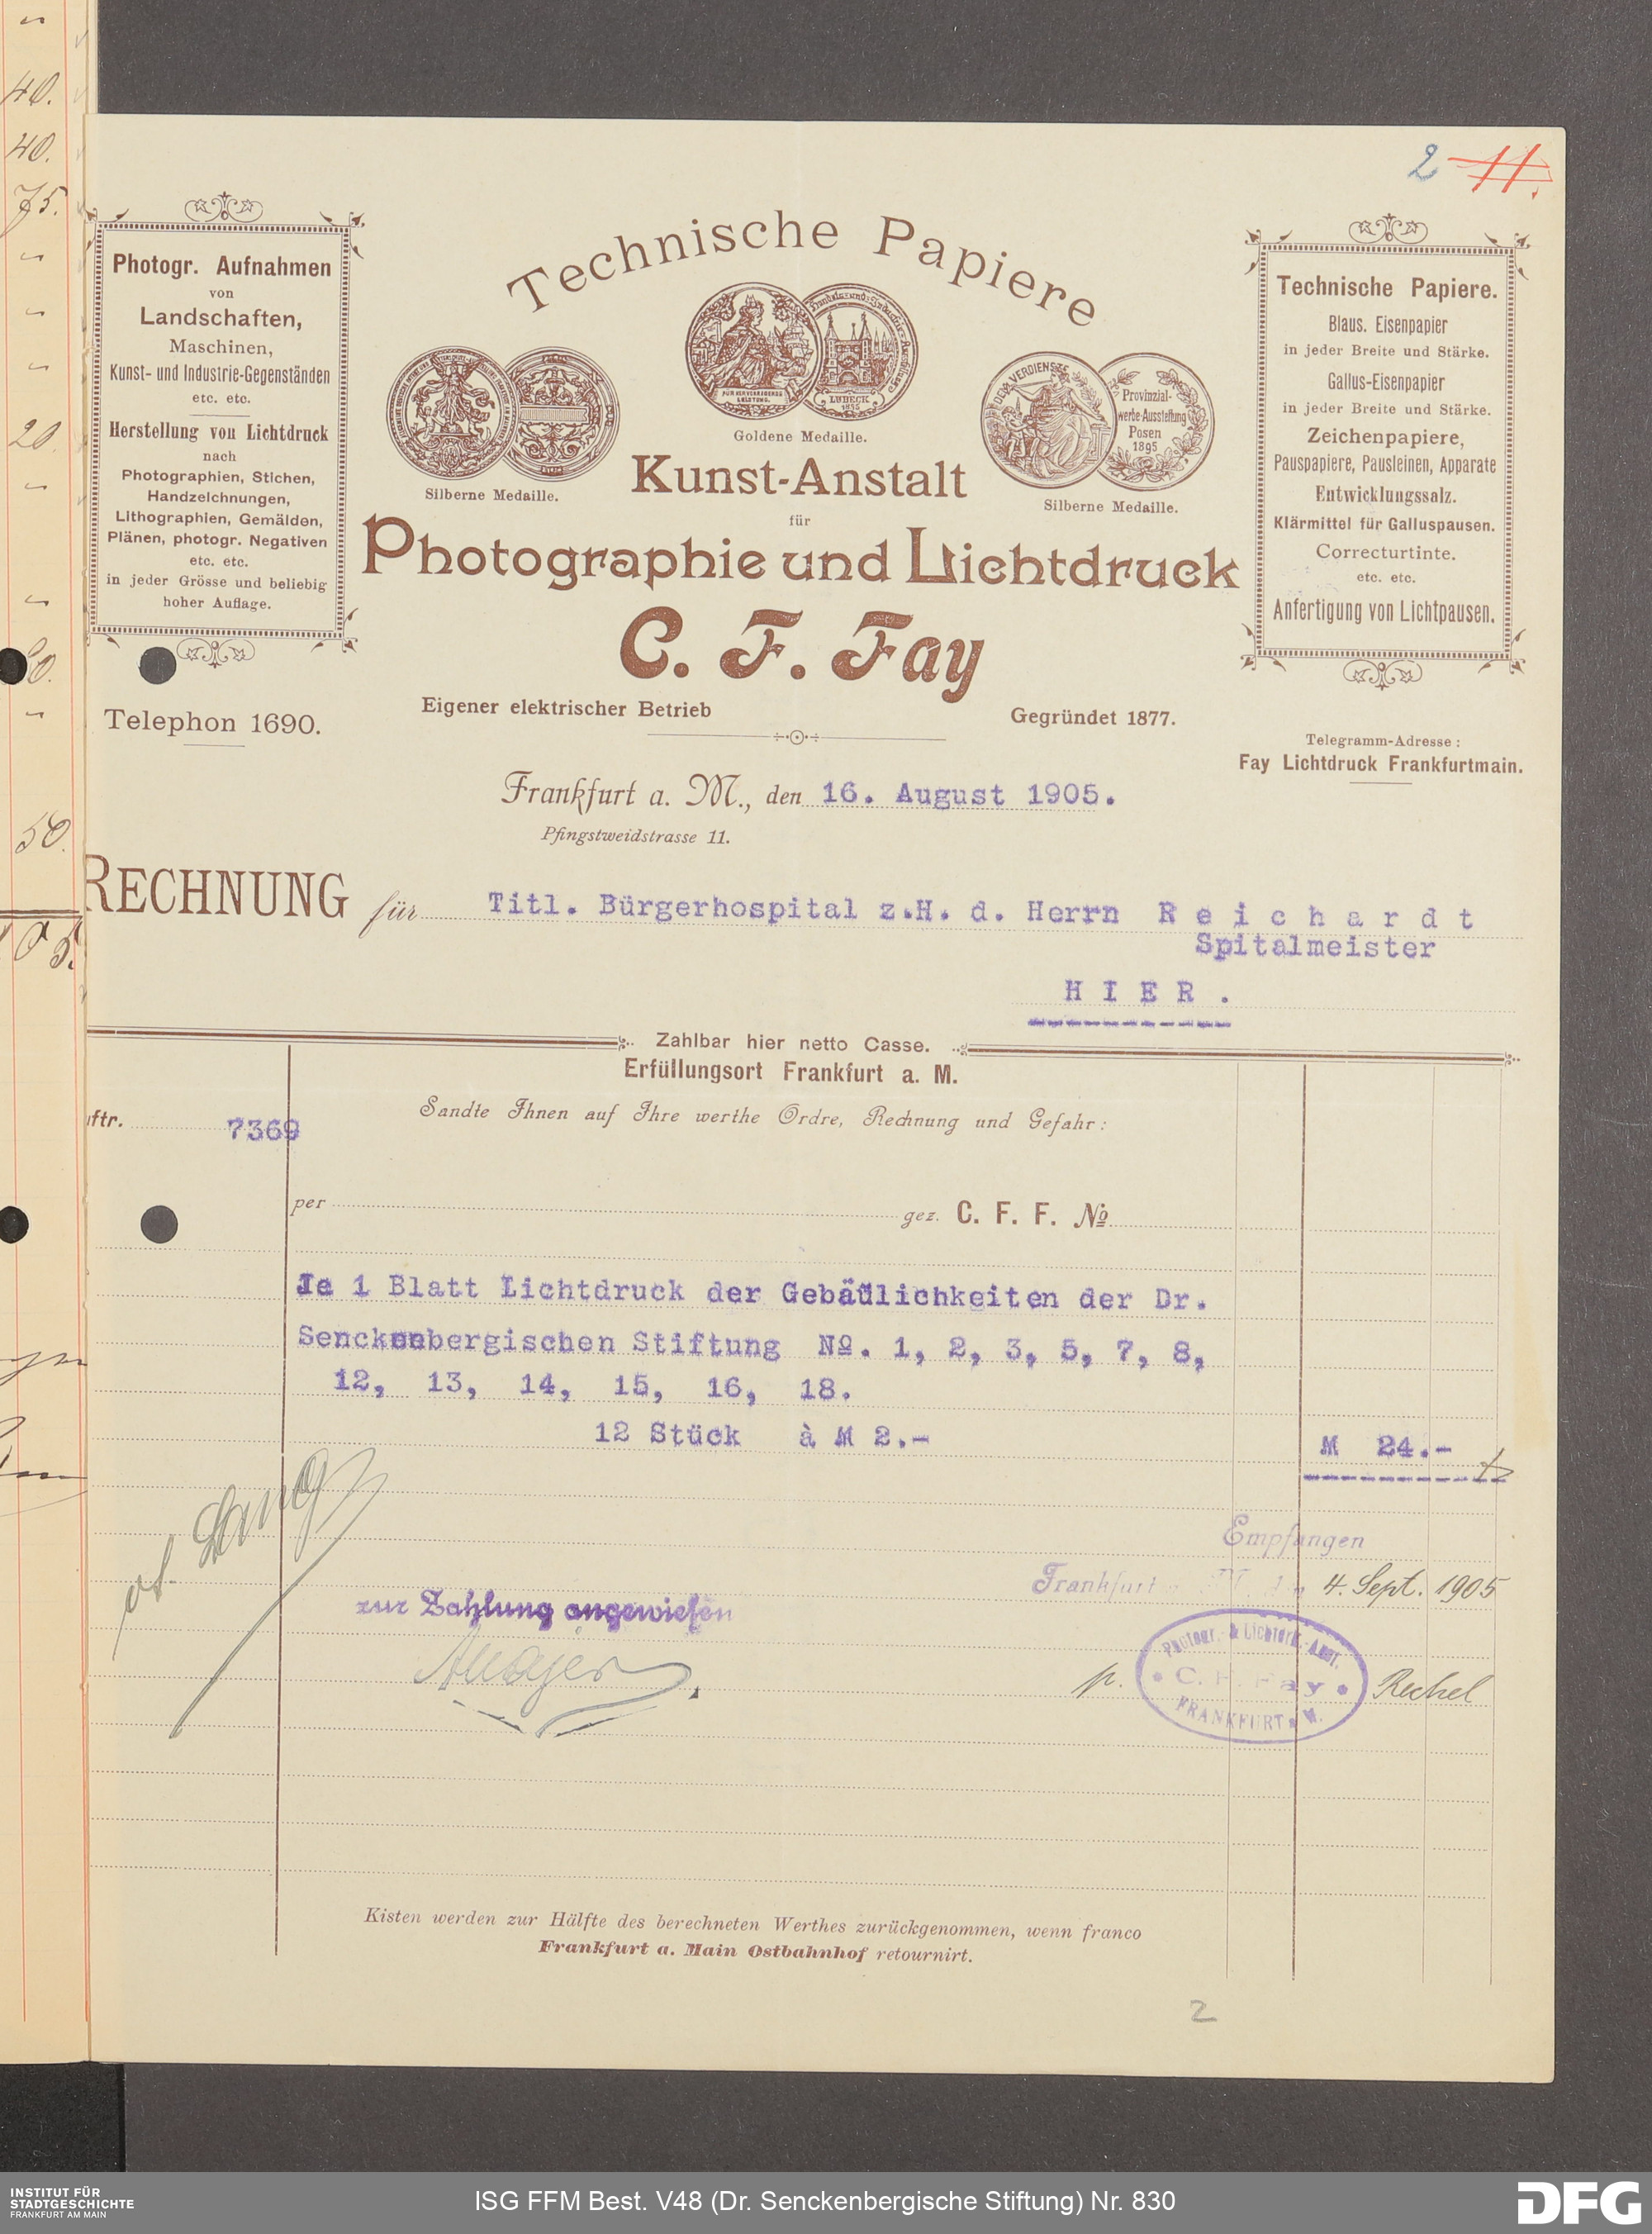 40.
40.
75.
20.
50.
2 11.
Photogr. Aufnahmen
von
Landschaften,
Maschinen,
Kunst- und Industrie-Gegenständen
etc. etc.
Herstellung von Lichtdruck
nach
Photographien, Stichen,
Handzeichnungen,
Lithographien, Gemälden,
Plänen, photogr. Negativen
etc. etc.
in jeder Grösse und beliebig
hoher Auflage.
Telephon 1690.
Technische Papiere
LUBECK
1895
Goldene Medaille.
Silberne Medaille.
DEM VERDIENSTE
Provinzial-
werbe-Ausstellung
Posen
1895
Silberne Medaille.
Kunst-Anstalt
für
Photographie und Lichtdruck
C. F. Fay
Eigener elektrischer Betrieb
Gegründet 1877.
Technische Papiere.
Blaus. Eisenpapier
in jeder Breite und Stärke.
Gallus-Eisenpapier
in jeder Breite und Stärke.
Zeichenpapiere,
Pauspapiere, Pausleinen, Apparate
Entwicklungssalz.
Klärmittel für Galluspausen.
Correcturtinte.
etc. etc.
Anfertigung von Lichtpausen.
Telegramm-Adresse:
Fay Lichtdruck Frankfurtmain.
Frankfurt a. M., den 16. August 1905.
Pfingstweidstrasse 11.
RECHNUNG für Titl. Bürgerhospital z.H. d. Herrn Reichardt
Spitalmeister
HIER.
Zahlbar hier netto Casse.
Erfüllungsort Frankfurt a. M.
uftr. 7369
Sandte Ihnen auf Ihre werthe Ordre, Rechnung und Gefahr:
per gez. C. F. F. №
Je 1 Blatt Lichtdruck der Gebäulichkeiten der Dr.
Senckenbergischen Stiftung №. 1, 2, 3, 5, 7, 8,
12, 13, 14, 15, 16, 18.
12 Stück à M 2.-
M 24.-
Empfangen
Frankfurt 4. Sept. 1905
zur Zahlung angewiesen
p.
Photogr.- & Lichtdr.-Anst.
C. F. Fay
FRANKFURT a. M.
Rechel
Kisten werden zur Hälfte des berechneten Werthes zurückgenommen, wenn franco
Frankfurt a. Main Ostbahnhof retournirt.
2
INSTITUT FÜR
STADTGESCHICHTE
FRANKFURT AM MAIN
ISG FFM Best. V48 (Dr. Senckenbergische Stiftung) Nr. 830
DFG